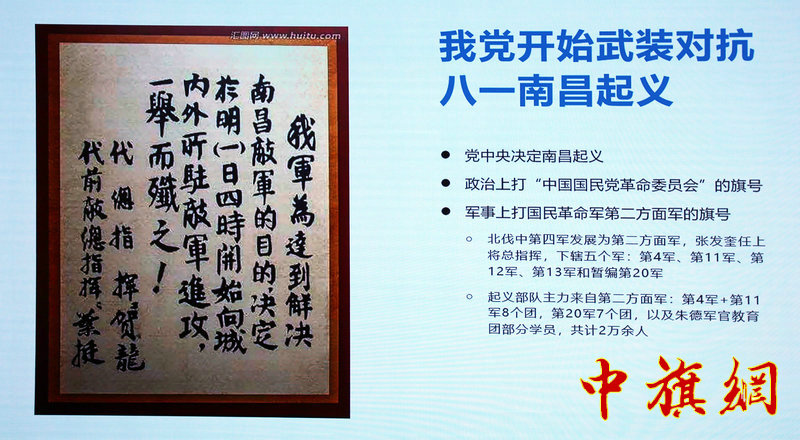 汇图网 www.huitu.com
我軍為達到解決
南昌敵軍的目的,决定
於明(一)日四時開始向城
内外所駐敵軍進攻,
一舉而殲之!
代總指揮:賀龍
代前敵總指揮:葉挺
我党开始武装对抗
八一南昌起义
● 党中央决定南昌起义
● 政治上打“中国国民党革命委员会”的旗号
● 军事上打国民革命军第二方面军的旗号
○ 北伐中第四军发展为第二方面军，张发奎任上
将总指挥，下辖五个军：第4军、第11军、第
12军、第13军和暂编第20军
○ 起义部队主力来自第二方面军：第4军+第11
军8个团，第20军7个团，以及朱德军官教育
团部分学员，共计2万余人
中旗網